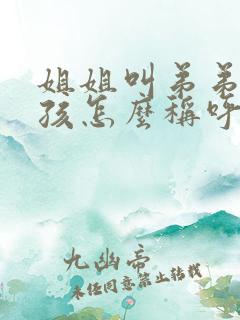 姐姐叫弟弟
孩怎麼稱呼
九幽帝
未经同意禁止转载